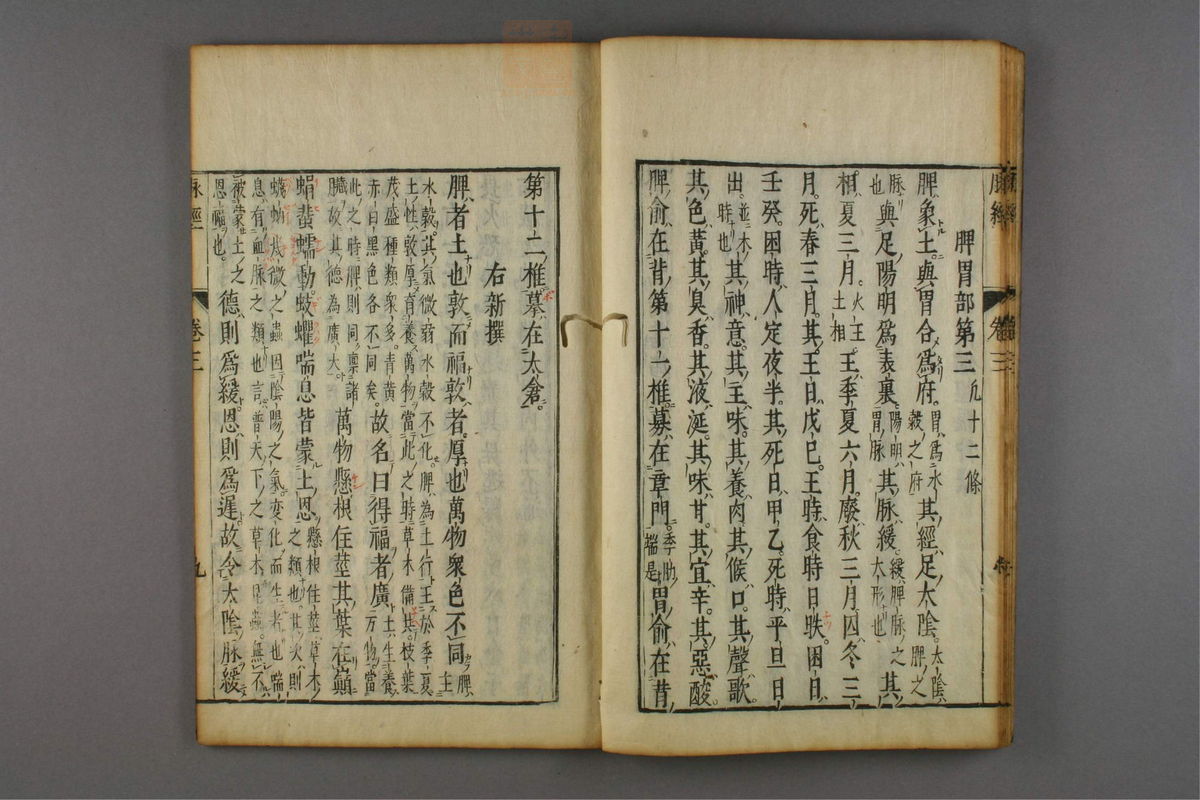 脾胃部第三 凡十二條
脾象土與胃合為府胃為水穀之府其經足太陰太陰脾之
脉也與足陽明為表裏陽明胃脉其脉緩緩脾脉之大形也其
相夏三月火王土相王季夏六月廢秋三月囚冬三
月死春三月其王日戊巳王時食時日昳困日
壬癸困時人定夜半其死日甲乙死時平旦日
出並木時也其神意其主味其養肉其候口其聲歌
其色黃其臭香其液涎其味甘其宜辛其惡酸
脾俞在背第十一椎募在章門季肋端是胃俞在背
第十二椎募在太倉
右新撰
脾者土也敦而福敦者厚也萬物衆色不同脾主
水穀其氣微弱水穀不化脾為土行王於季夏
土性敦厚育養萬物當此之時草木備具枝葉
茂盛種類衆多青黃
赤白黑色各不同矣故名曰得福者廣土生養万物當
此之時脾則同稟諸
臓故其德為廣大萬物懸根住莖其葉在巔
蜎蜚蠕動蚑蠷喘息皆蒙土恩懸根住莖草木之類也其次則
蛾蚋幾微之蟲因陰陽之氣変化而生者也喘
息有血脉之類也言普天下之草木昆蟲無不
被蒙土之恩福也德則為緩恩則為遲故令太陰脉緩
脉經 卷三 九